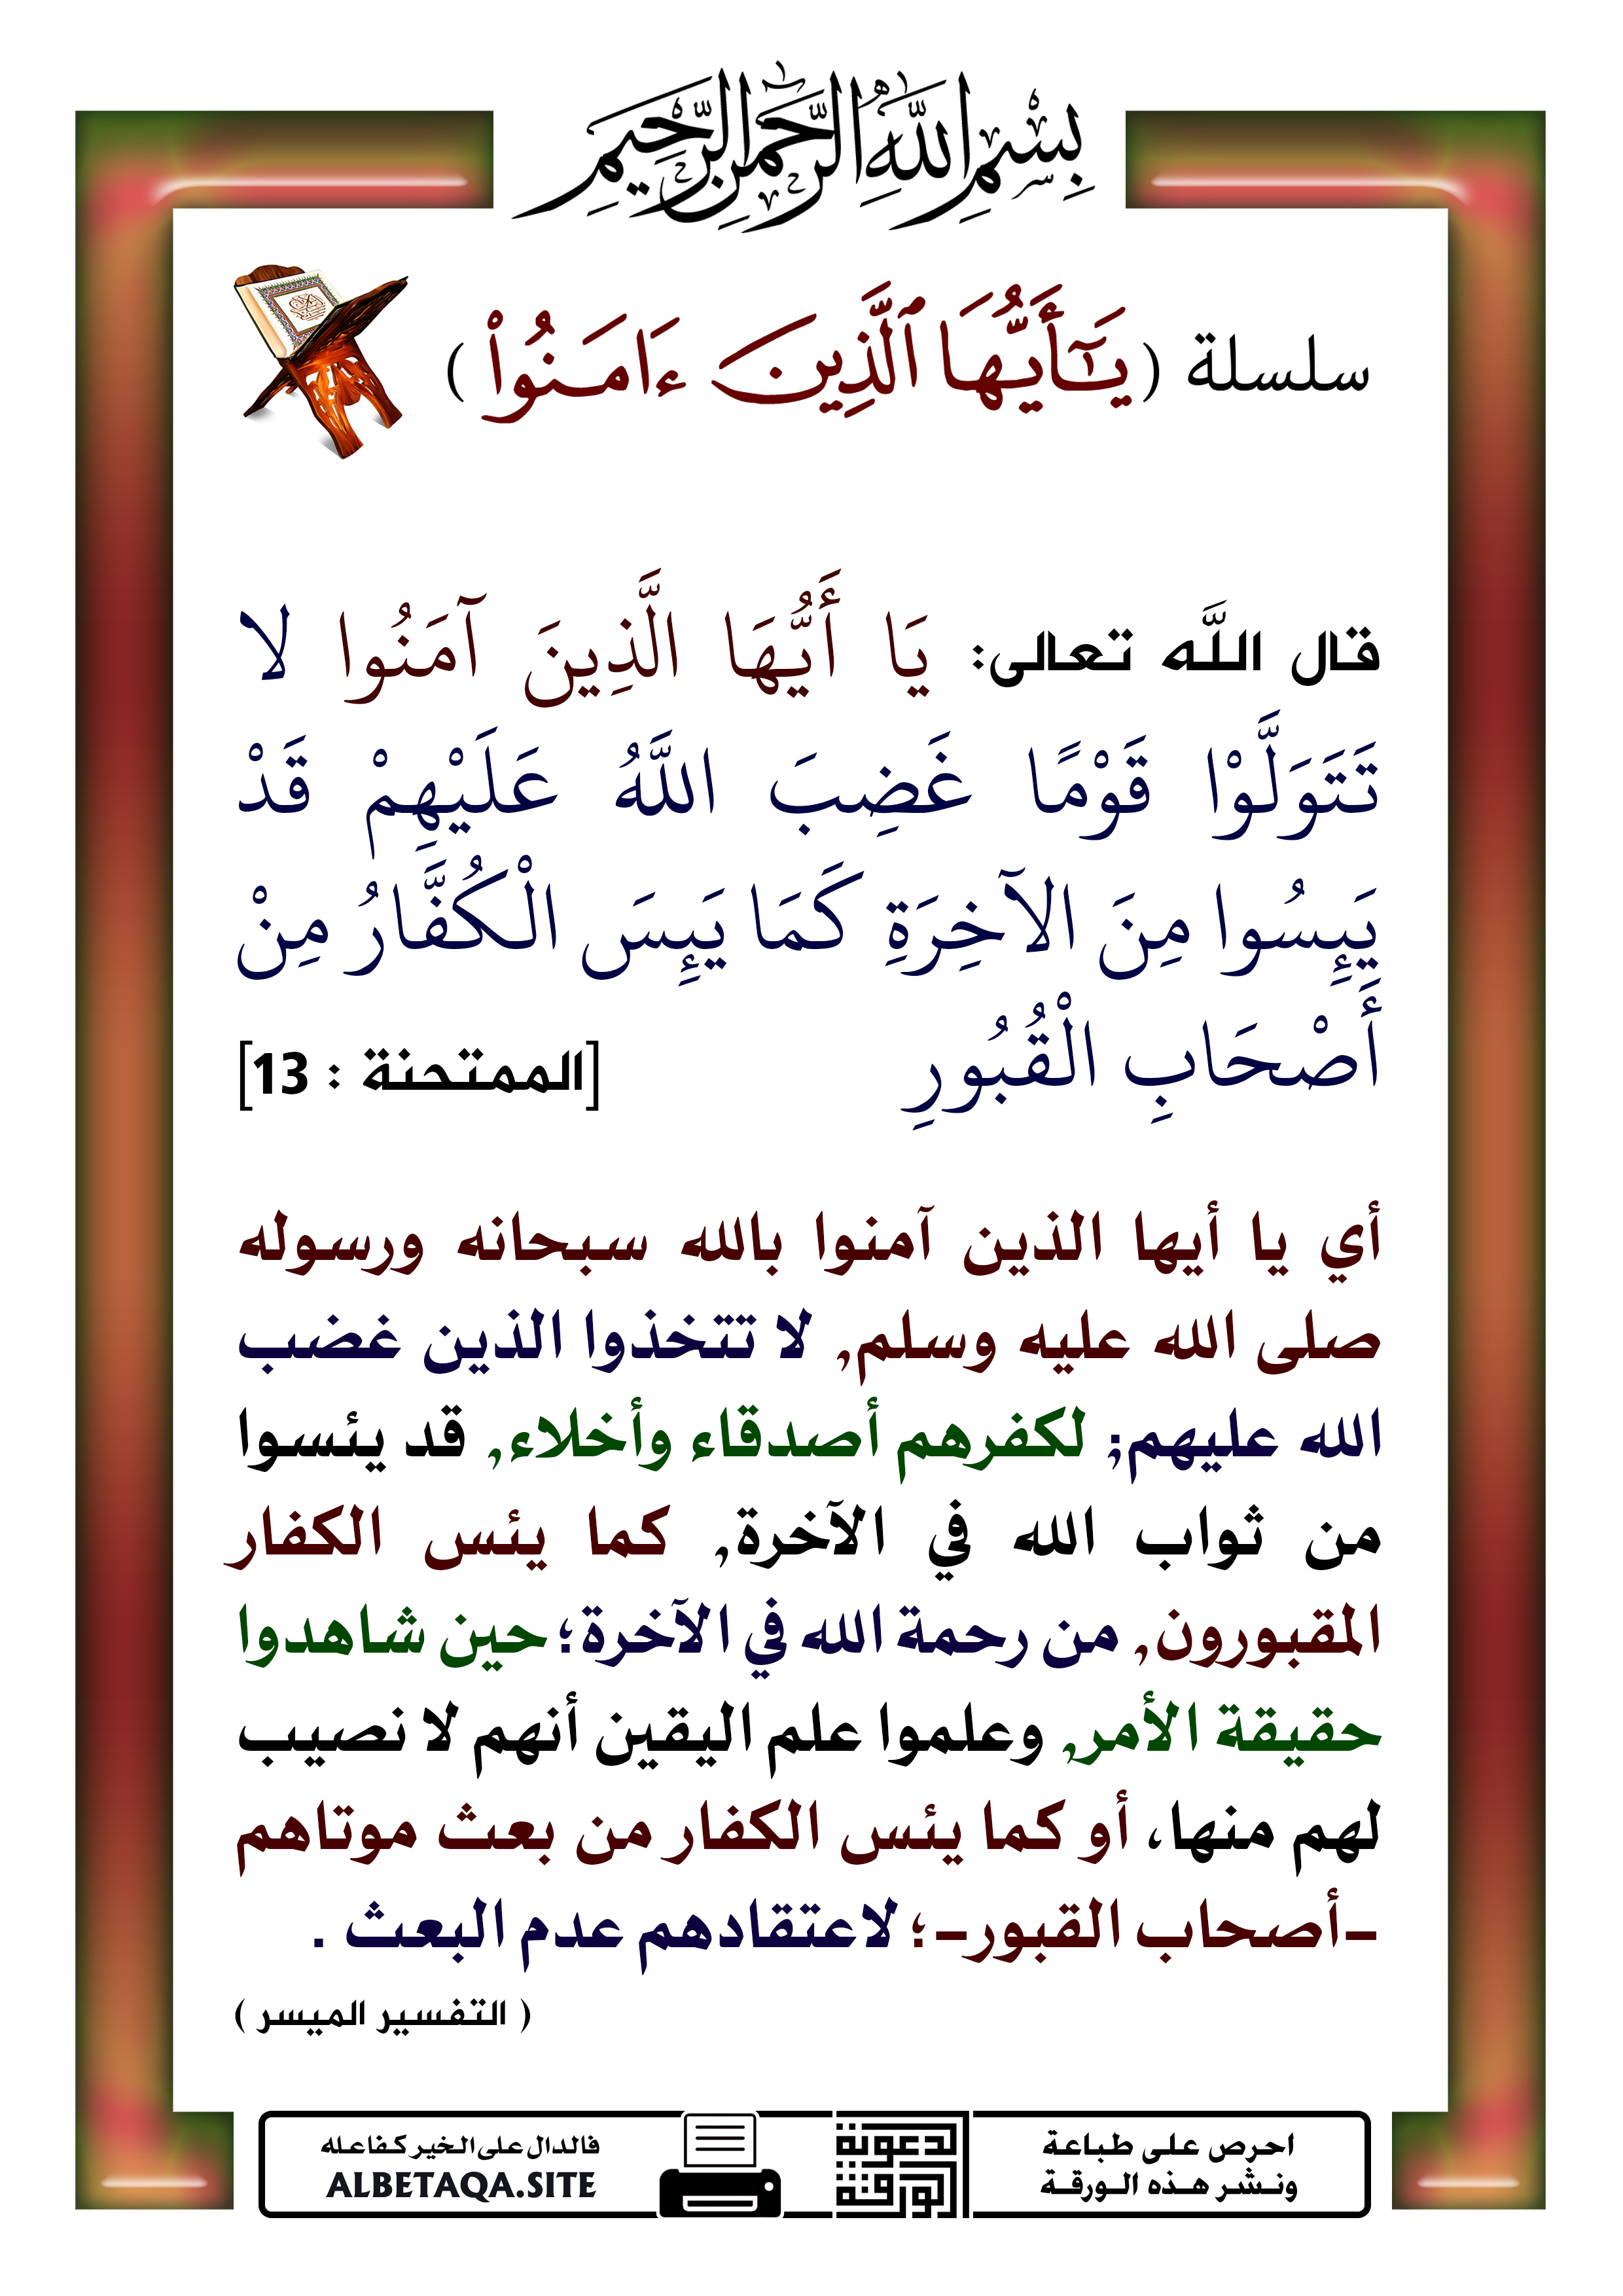 بِسْمِ اللَّهِ الرَّحْمَٰنِ الرَّحِيمِ
سلسلة (يَٰٓأَيُّهَا ٱلَّذِينَ ءَامَنُوا۟)
قال اللَّه تعالى: يَا أَيُّهَا الَّذِينَ آمَنُوا لا
تَتَوَلَّوْا قَوْمًا غَضِبَ اللَّهُ عَلَيْهِمْ قَدْ
يَئِسُوا مِنَ الآخِرَةِ كَمَا يَئِسَ الْكُفَّارُ مِنْ
أَصْحَابِ الْقُبُورِ [الممتحنة : 13]
أي يا أيها الذين آمنوا بالله سبحانه ورسوله
صلى الله عليه وسلم, لا تتخذوا الذين غضب
الله عليهم; لكفرهم أصدقاء وأخلاء, قد يئسوا
من ثواب الله في الآخرة, كما يئس الكفار
المقبورون, من رحمة الله في الآخرة؛ حين شاهدوا
حقيقة الأمر, وعلموا علم اليقين أنهم لا نصيب
لهم منها، أو كما يئس الكفار من بعث موتاهم
-أصحاب القبور-؛ لاعتقادهم عدم البعث .
( التفسير الميسر )
احرص على طباعة
ونشر هذه الورقة
الورقة
لدعوية
فالدال على الخير كفاعله
ALBETAQA.SITE